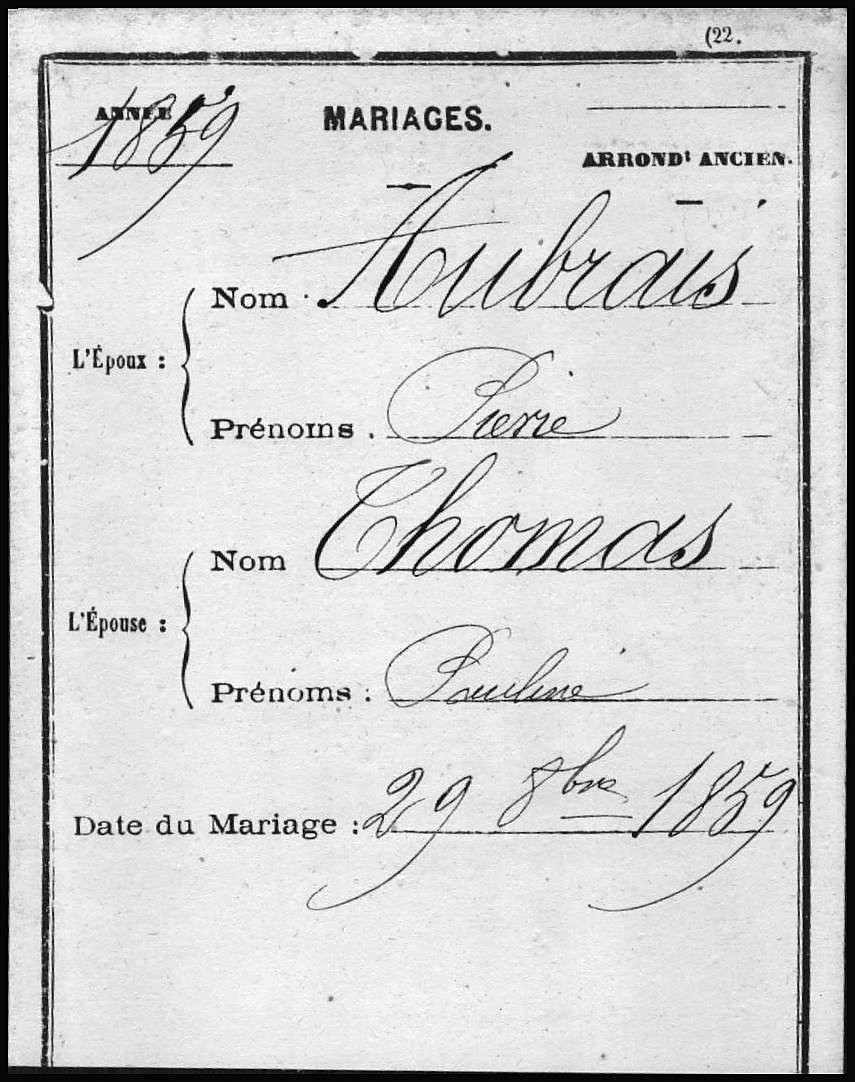 (22.
ANNÉE
1859
MARIAGES.
ARRONDt ANCIEN.
L'Époux :
Nom . Aubrais
Prénoms . Pierre
L'Épouse :
Nom Thomas
Prénoms : Pauline
Date du Mariage : 29 8bre 1859